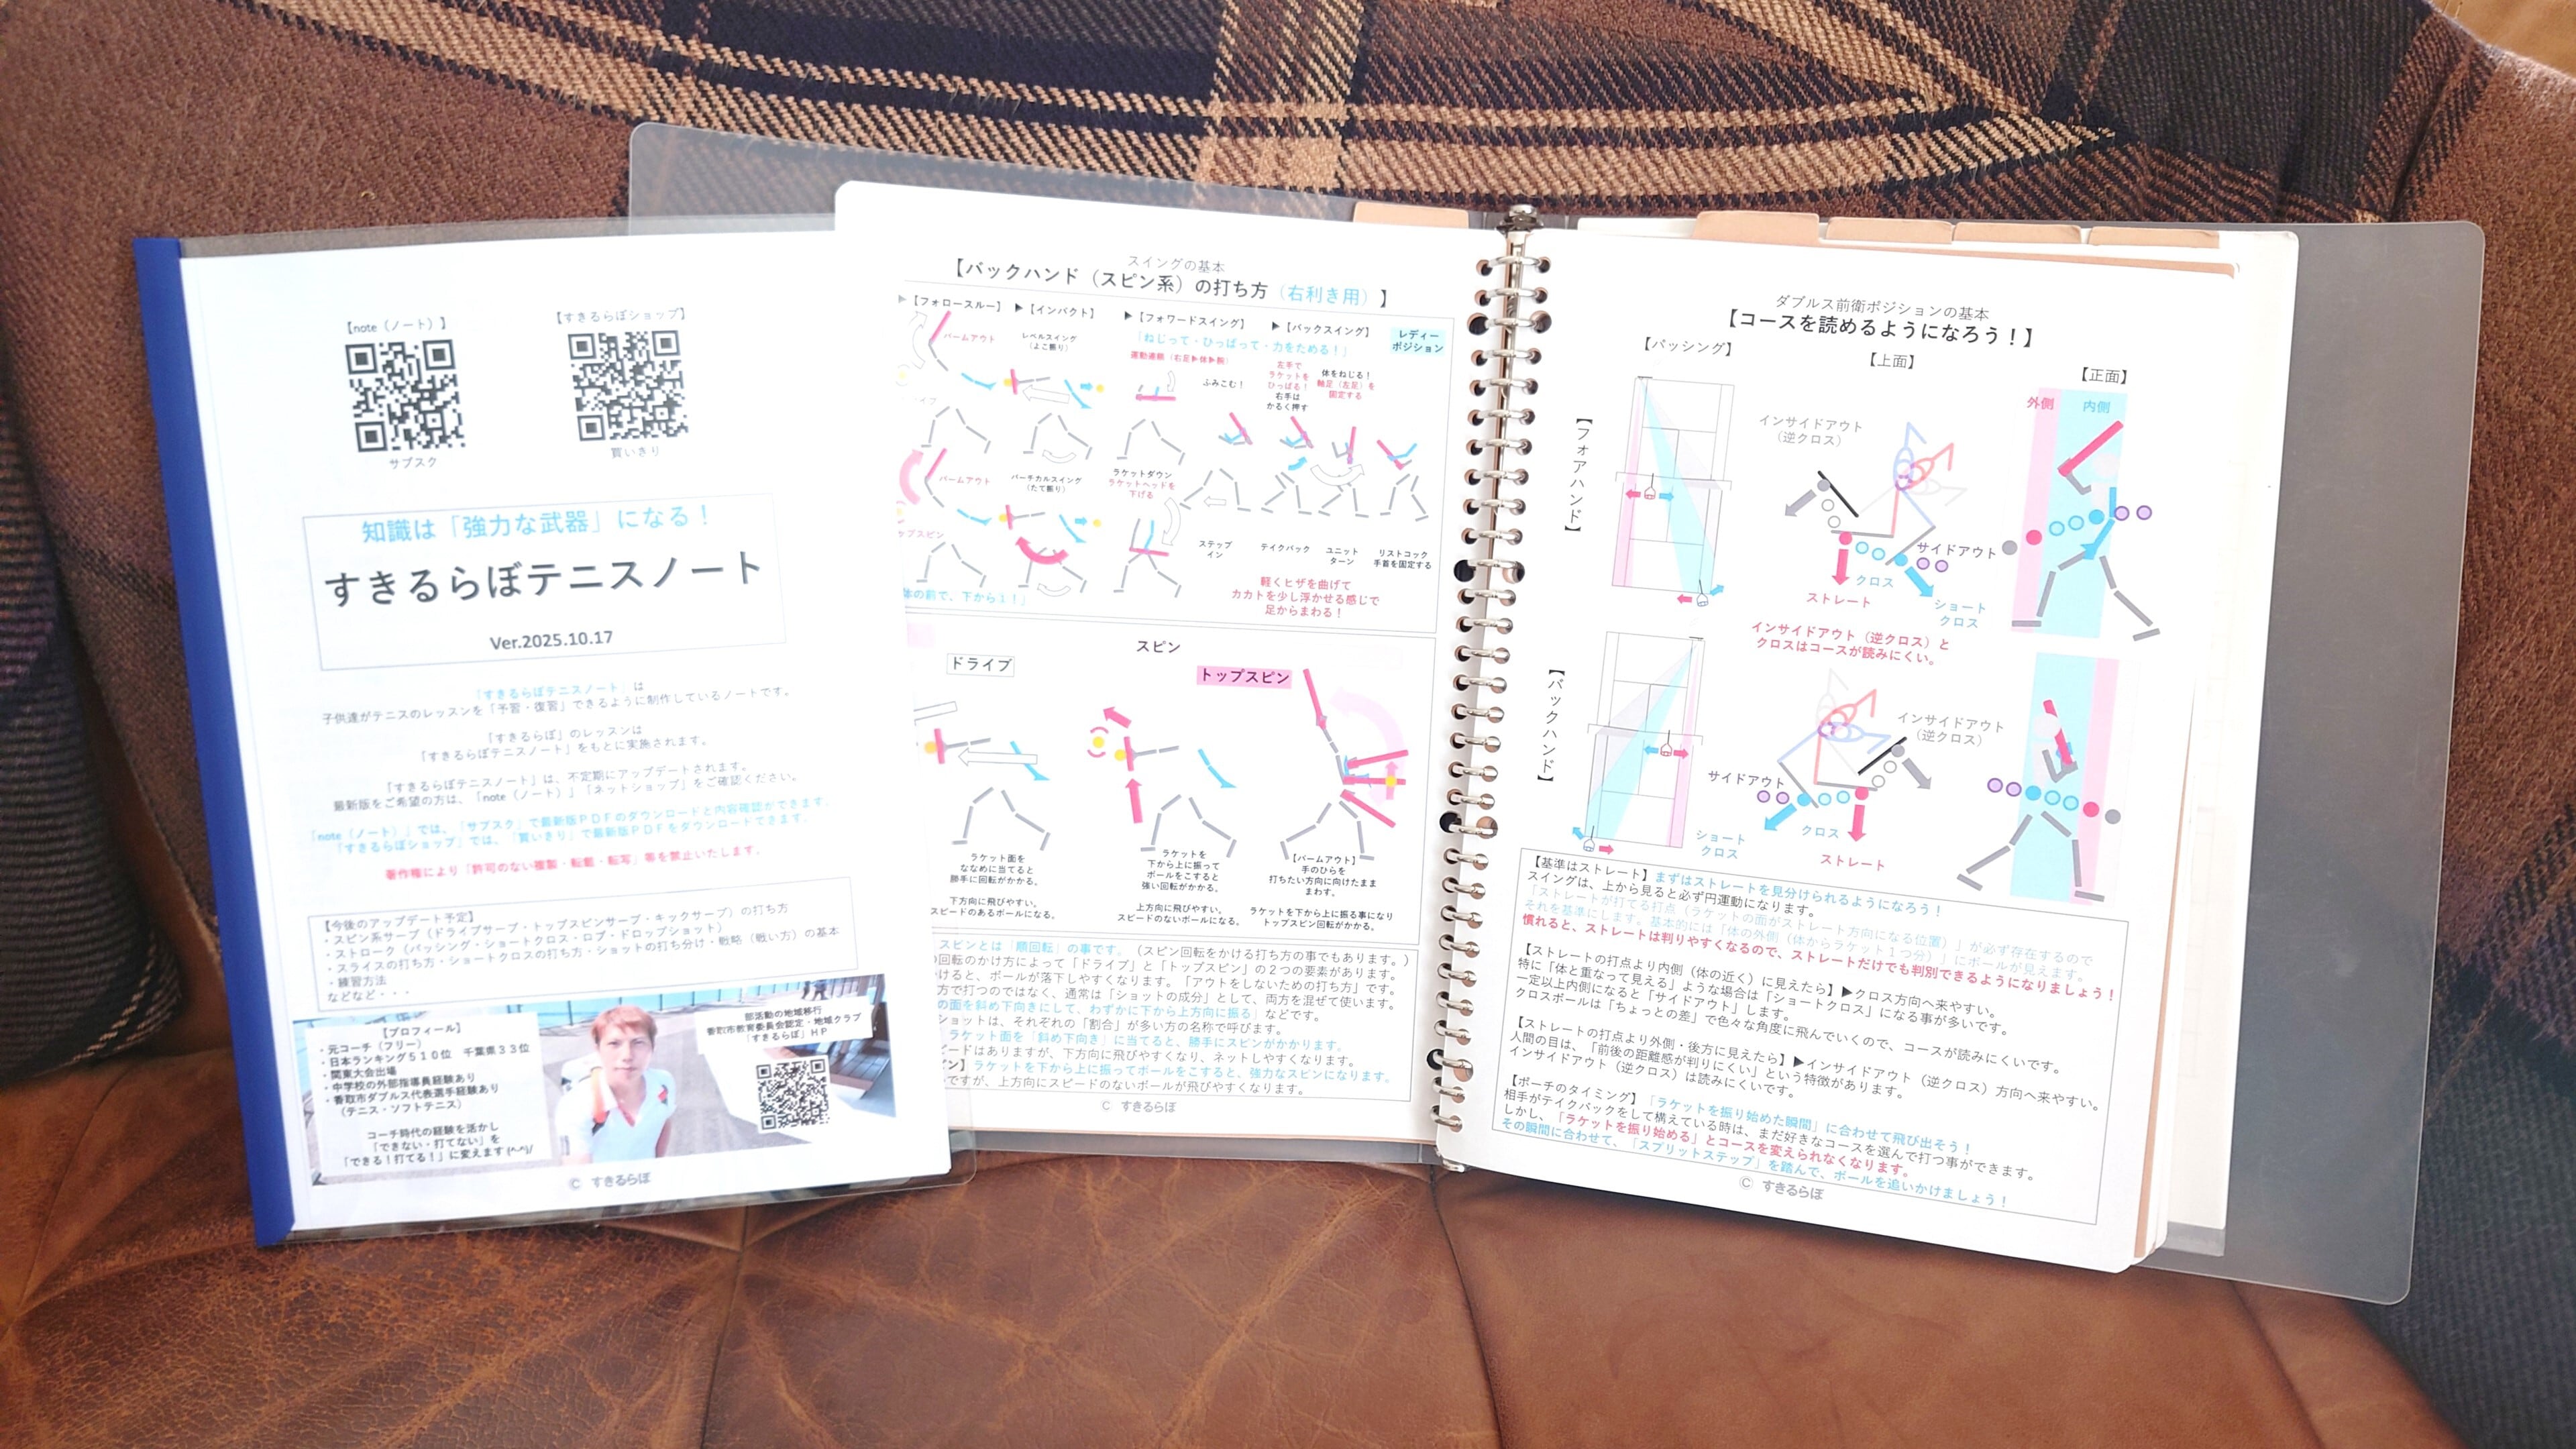 【note（ノート）】
サブスク
【すきるらぼショップ】
買いきり
知識は「強力な武器」になる！
すきるらぼテニスノート
Ver.2025.10.17
「すきるらぼテニスノート」は
子供達がテニスのレッスンを「予習・復習」できるように制作しているノートです。
「すきるらぼ」のレッスンは
「すきるらぼテニスノート」をもとに実施されます。
「すきるらぼテニスノート」は、不定期にアップデートされます。
最新版をご希望の方は、「note（ノート）」「ネットショップ」をご確認ください。
「note（ノート）」では、「サブスク」で最新版ＰＤＦのダウンロードと内容確認ができます。
「すきるらぼショップ」では、「買いきり」で最新版ＰＤＦをダウンロードできます。
著作権により「許可のない複製・転載・転写」等を禁止いたします。
【今後のアップデート予定】
・スピン系サーブ（ドライブサーブ・トップスピンサーブ・キックサーブ）の打ち方
・ストローク（パッシング・ショートクロス・ロブ・ドロップショット）
・スライスの打ち方・ショートクロスの打ち方・ショットの打ち分け・戦略（戦い方）の基本
・練習方法
などなど・・・
【プロフィール】
・元コーチ（フリー）
・日本ランキング５１０位　千葉県３３位
・関東大会出場
・中学校の外部指導員経験あり
・香取市ダブルス代表選手経験あり
（テニス・ソフトテニス）
コーチ時代の経験を活かし
「できない・打てない」を
「できる！打てる！」に変えます(^-^)/
部活動の地域移行
香取市教育委員会認定・地域クラブ
「すきるらぼ」ＨＰ
© すきるらぼ
スイングの基本
【バックハンド（スピン系）の打ち方（右利き用）】
▶【フォロースルー】 ▶【インパクト】 ▶【フォワードスイング】 ▶【バックスイング】
レディー
ポジション
「ねじって・ひっぱって・力をためる！」
運動連鎖（右足▶体▶腕）
パームアウト
レベルスイング
（よこ振り）
ふみこむ！
左手で
ラケットを
ひっぱる！
右手は
かるく押す
体をねじる！
軸足（左足）を
固定する
パームアウト
バーチカルスイング
（たて振り）
ラケットダウン
ラケットヘッドを
下げる
ップスピン
ステップ
イン
テイクバック
ユニット
ターン
リストコック
手首を固定する
体の前で、下から１！」
軽くヒザを曲げて
カカトを少し浮かせる感じで
足からまわる！
スピン
ドライブ
トップスピン
ラケット面を
ななめに当てると
勝手に回転がかかる。
下方向に飛びやすい。
スピードのあるボールになる。
ラケットを
下から上に振って
ボールをこすると
強い回転がかかる。
上方向に飛びやすい。
スピードのないボールになる。
【パームアウト】
手のひらを
打ちたい方向に向けたまま
まわす。
ラケットを下から上に振る事になり
トップスピン回転がかかる。
スピンとは「順回転」の事です。（スピン回転をかける打ち方の事でもあります。）
回転のかけ方によって「ドライブ」と「トップスピン」の２つの要素があります。
けると、ボールが落下しやすくなります。「アウトをしないための打ち方」です。
方で打つのではなく、通常は「ショットの成分」として、両方を混ぜて使います。
の面を斜め下向きにして、わずかに下から上方向に振る」などです。
ショットは、それぞれの「割合」が多い方の名称で呼びます。
ラケット面を「斜め下向き」に当てると、勝手にスピンがかかります。
ピードはありますが、下方向に飛びやすくなり、ネットしやすくなります。
ン】ラケットを下から上に振ってボールをこすると、強力なスピンになります。
ですが、上方向にスピードのないボールが飛びやすくなります。
© すきるらぼ
ダブルス前衛ポジションの基本
【コースを読めるようになろう！】
【パッシング】
【上面】
【正面】
【フォアハンド】
インサイドアウト
（逆クロス）
外側
内側
サイドアウト
クロス
ストレート
ショート
クロス
インサイドアウト（逆クロス）と
クロスはコースが読みにくい。
【バックハンド】
インサイドアウト
（逆クロス）
サイドアウト
ショート
クロス
クロス
ストレート
【基準はストレート】まずはストレートを見分けられるようになろう！
スイングは、上から見ると必ず円運動になります。
「ストレートが打てる打点（ラケットの面がストレート方向になる位置）」が必ず存在するので
それを基準にします。基本的には「体の外側（体からラケット１つ分）」にボールが見えます。
慣れると、ストレートは判りやすくなるので、ストレートだけでも判別できるようになりましょう！
【ストレートの打点より内側（体の近く）に見えたら】▶クロス方向へ来やすい。
特に「体と重なって見える」ような場合は「ショートクロス」になる事が多いです。
一定以上内側になると「サイドアウト」します。
クロスボールは「ちょっとの差」で色々な角度に飛んでいくので、コースが読みにくいです。
【ストレートの打点より外側・後方に見えたら】▶インサイドアウト（逆クロス）方向へ来やすい。
人間の目は、「前後の距離感が判りにくい」という特徴があります。
インサイドアウト（逆クロス）は読みにくいです。
【ポーチのタイミング】「ラケットを振り始めた瞬間」に合わせて飛び出そう！
相手がテイクバックをして構えている時は、まだ好きなコースを選んで打つ事ができます。
しかし、「ラケットを振り始める」とコースを変えられなくなります。
その瞬間に合わせて、「スプリットステップ」を踏んで、ボールを追いかけましょう！
© すきるらぼ